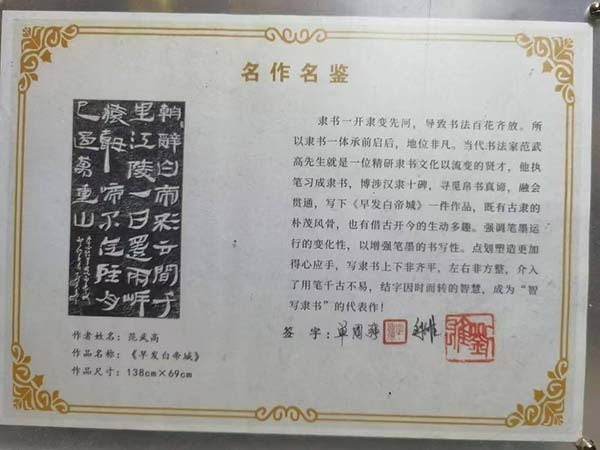 名作名鉴
朝辭白帝彩雲間千
里江陵一日還兩岸
猿聲啼不住輕舟
已過萬重山
作者姓名：范武高
作品名称：《早发白帝城》
作品尺寸：138cm×69cm
隶书一开隶变先河，导致书法百花齐放。所
以隶书一体承前启后，地位非凡。当代书法家范武
高先生就是一位精研隶书文化以流变的贤才，他执
笔习成隶书，博涉汉隶十碑，寻觅帛书真谛，融会
贯通，写下《早发白帝城》一件作品，既有古隶的
朴茂风骨，也有借古开今的生动多趣。强调笔墨运
行的变化性，以增强笔墨的书写性。点划塑造更加
得心应手，写隶书上下非齐平，左右非方整，介入
了用笔千古不易，结字因时而转的智慧，成为“智
写隶书”的代表作！
签 字：单国强